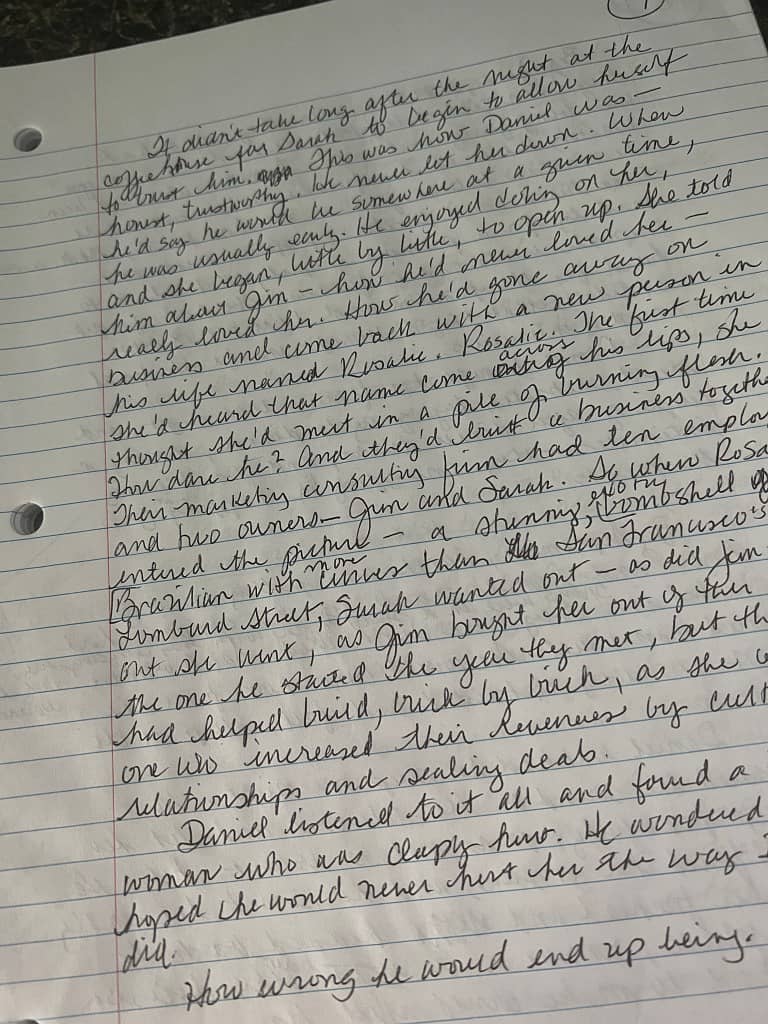 1
It didn't take long after the night at the
coffeehouse for Sarah to begin to allow herself
to trust him. This was how Daniel was —
honest, trustworthy. He never let her down. When
he'd say he would be somewhere at a given time,
he was usually early. He enjoyed doting on her,
and she began, little by little, to open up. She told
him about Jim – how he'd never loved her –
really loved her. How he'd gone away on
business and come back with a new person in
his life named Rosalie. Rosalie. The first time
she'd heard that name come across his lips, she
thought she'd melt in a pile of burning flesh.
How dare he? And they'd built a business togethe
Their marketing consulting firm had ten employ
and two owners – Jim and Sarah. So when Rosa
entered the picture – a stunning, bombshell of
Brazilian with more curves than San Francisco's
Lombard Street, Sarah wanted out – as did Jim
out she went, as Jim bought her out of their
the one he started the year they met, but th
had helped build, brick by brick, as she w
one who increased their revenues by cult
relationships and sealing deals.
Daniel listened to it all and found a
woman who was deeply hurt. He wondered
hoped he would never hurt her the way J
did.
How wrong he would end up being.